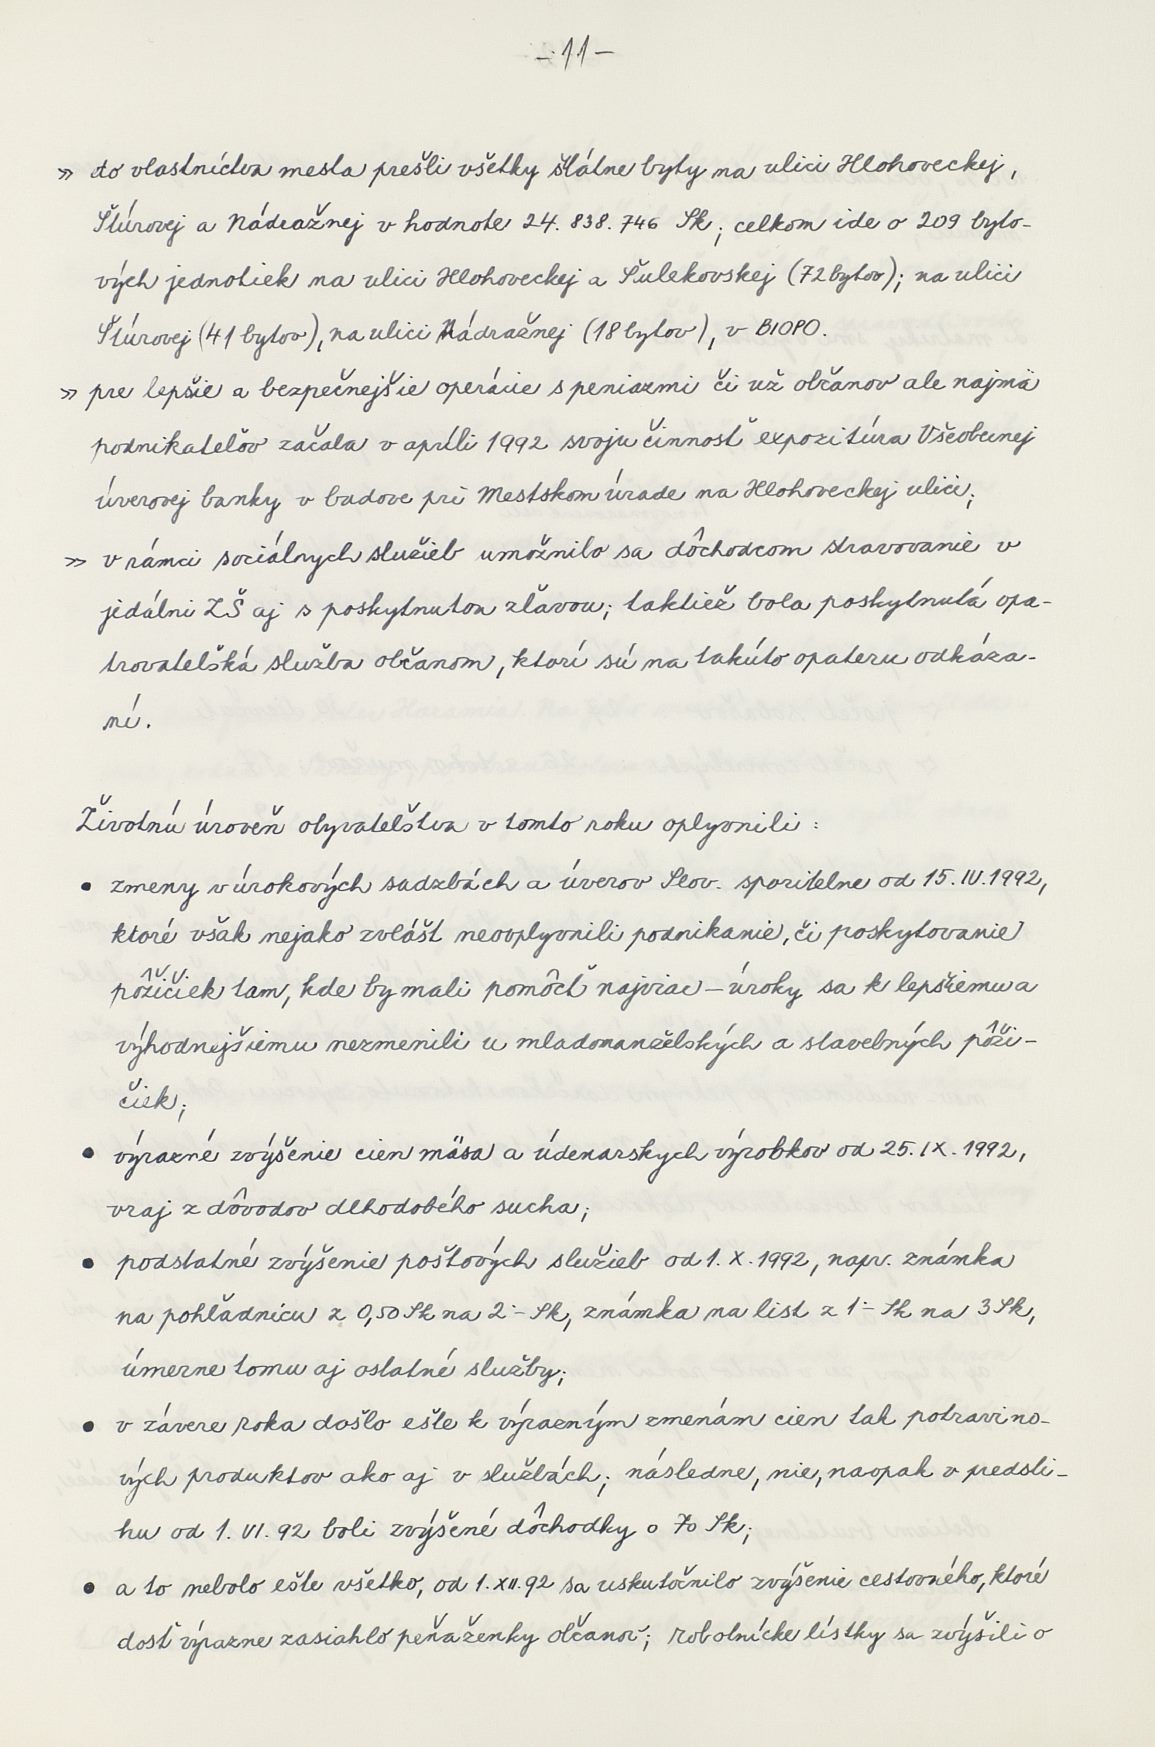 - 11 -
» do vlastníctva mesta prešli všetky štátne byty na ulici Hlohoveckej,
Štúrovej a Nádražnej v hodnote 24. 838. 746 Sk; celkom ide o 209 byto-
vých jednotiek na ulici Hlohoveckej a Šulekovskej (72 bytov); na ulici
Štúrovej (41 bytov), na ulici Nádražnej (18 bytov), v BIOPO.
» pre lepšie a bezpečnejšie operácie s peniazmi či už občanov ale najmä
podnikateľov začala v apríli 1992 svoju činnosť expozitúra Všeobecnej
úverovej banky v budove pri Mestskom úrade na Hlohoveckej ulici;
» v rámci sociálnych služieb umožnilo sa dôchodcom stravovanie v
jedálni ZŠ aj s poskytnutou zľavou; taktiež bola poskytnutá opa-
trovateľská služba občanom, ktorí sú na takúto opateru odkáza-
ní.
Životnú úroveň obyvateľstva v tomto roku oplyvnili :
• zmeny v úrokových sadzbách a úverov Slov. sporitelne od 15. IV. 1992,
ktoré však nejako zvlášt neovplyvnili podnikanie, či poskytovanie
pôžičiek tam, kde by mali pomôcť najviac – úroky sa k lepšiemu a
výhodnejšiemu nezmenili u mladomanželských a stavebných pôži-
čiek;
• výrazné zvýšenie cien mäsa a údenarskych výrobkov od 25. IX. 1992,
vraj z dôvodov dlhodobého sucha;
• podstatné zvýšenie poštových služieb od 1. X. 1992, napr. známka
na pohľadnicu z 0,50 Sk na 2.- Sk, známka na list z 1.- Sk na 3 Sk,
úmerne tomu aj ostatné služby;
• v závere roka došlo ešte k výrazným zmenám cien tak potravino-
vých produktov ako aj v službách; následne, nie, naopak v predsti-
hu od 1. VI. 92 boli zvýšené dôchodky o 70 Sk;
• a to nebolo ešte všetko, od 1. XII. 92 sa uskutočnilo zvýšenie cestovného, ktoré
dosť výrazne zasiahlo peňaženky občanov; robotnícke lístky sa zvýšili o